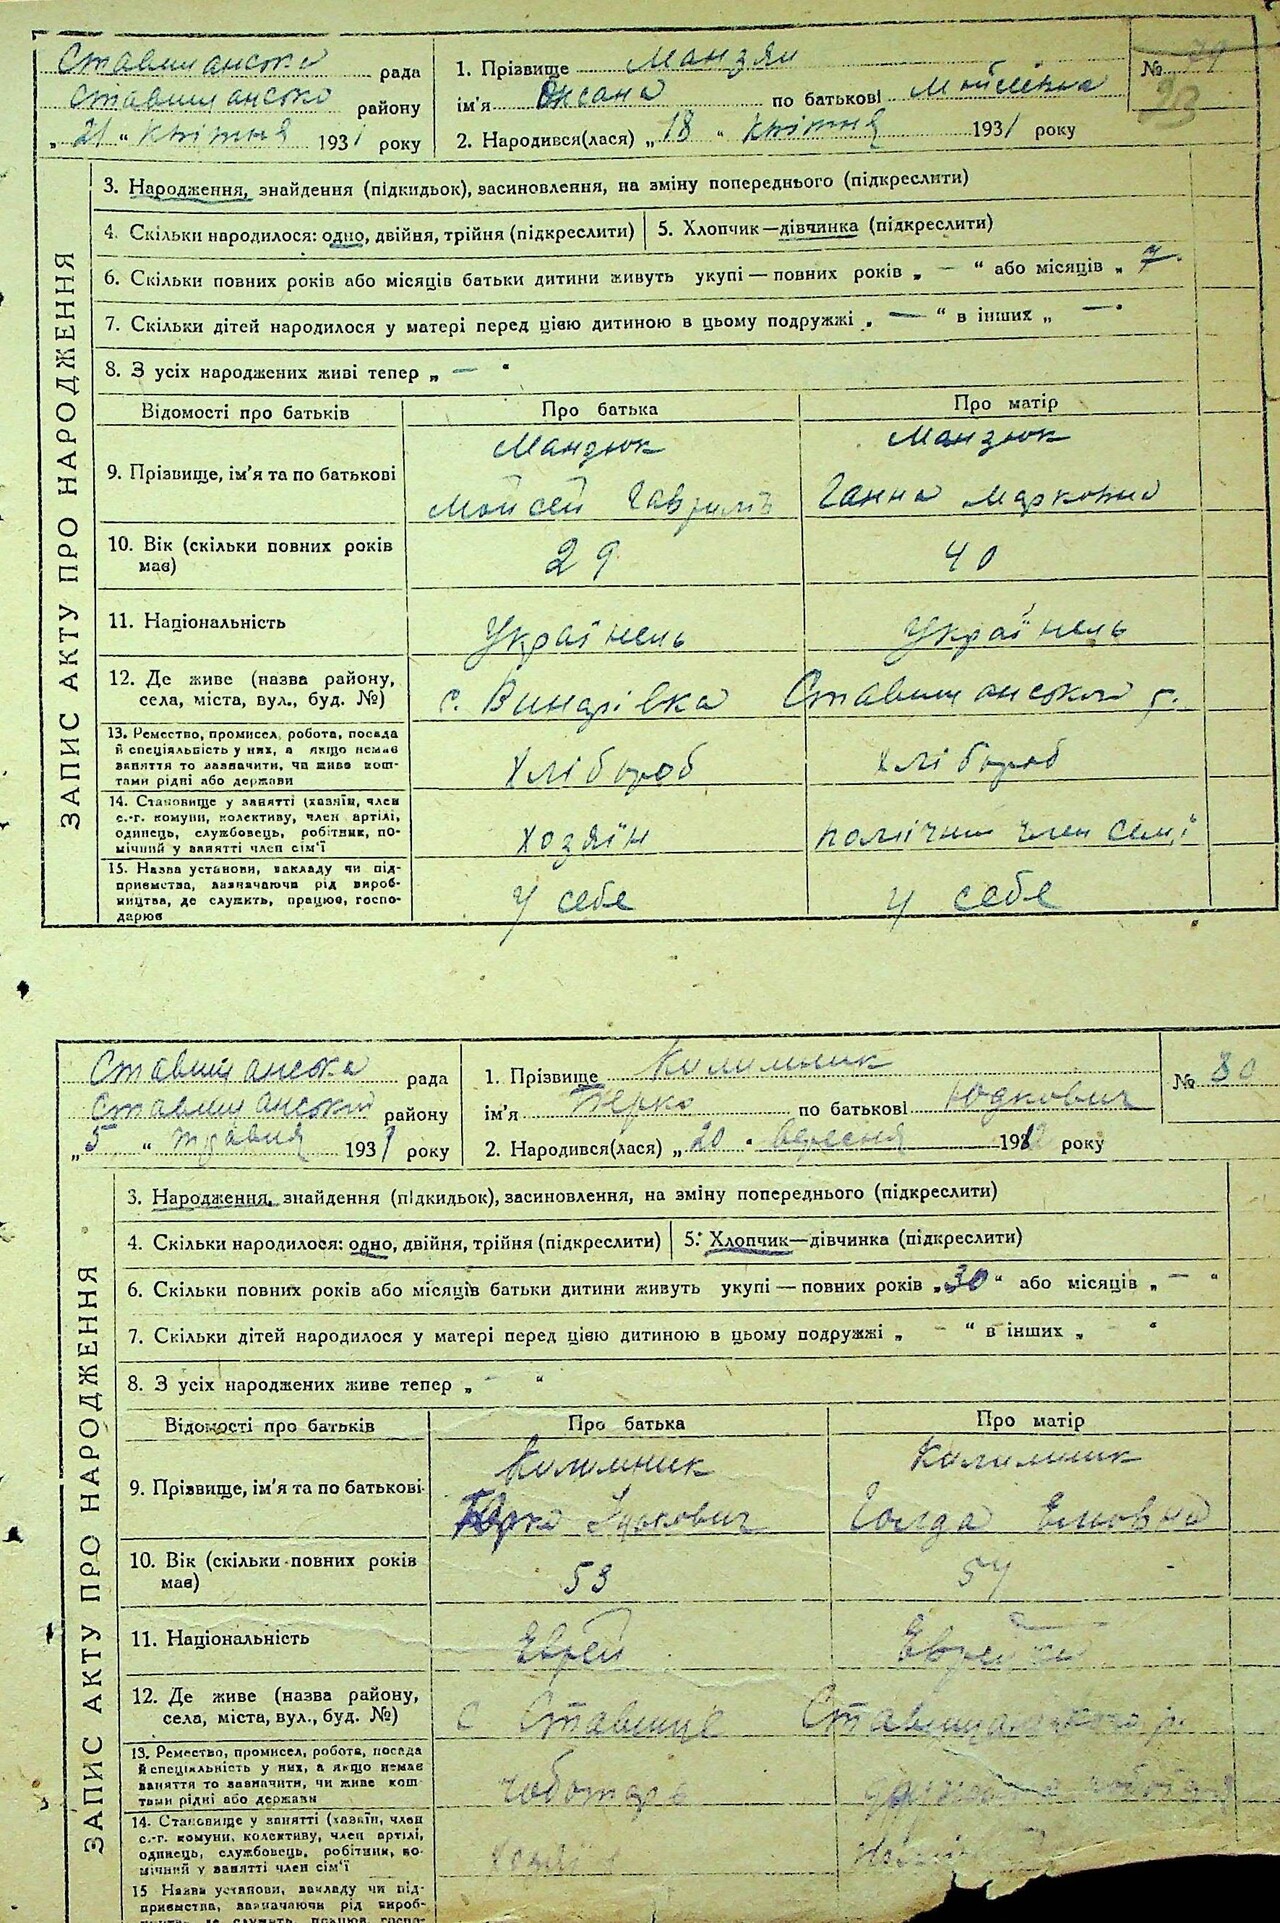 Ставищанська рада
Ставищансько району
„ 21 “ квітня 1931 року
1. Прізвище Манзюк
№ 79
ім'я Оксана по батькові Мойсеївна
2. Народився(лася) „ 18 “ квітня 1931 року
ЗАПИС АКТУ ПРО НАРОДЖЕННЯ
3. Народження, знайдення (підкидьок), засиновлення, на зміну попереднього (підкреслити)
4. Скільки народилося: одно, двійня, трійня (підкреслити) 5. Хлопчик—дівчинка (підкреслити)
6. Скільки повних років або місяців батьки дитини живуть укупі — повних років „ — “ або місяців „ 7
7. Скільки дітей народилося у матері перед цією дитиною в цьому подружжі „ — “ в інших „ — “
8. З усіх народжених живі тепер „ — “
Відомості про батьків Про батька Про матір
9. Прізвище, ім'я та по батькові
Манзюк Манзюк
Мойсей Гаврилів Ганна Марковна
10. Вік (скільки повних років має) 29 40
11. Національність Українець Українець
12. Де живе (назва району, села, міста, вул., буд. №)
с. Винарівка Ставищанського р.
13. Ремество, промисел, робота, посада
й спеціальність у них, а якщо немає
заняття то зазначити, чи живе кош-
тами рідні або держави
хлібороб хлібороб
14. Становище у занятті (хазяїн, член
с.-г. комуни, колективу, член артілі,
одинець, службовець, робітник, по-
мічний у занятті член сім'ї
хозяїн помічни член семї
15. Назва установи, закладу чи під-
приємства, зазначаючи рід вироб-
ництва, де служить, працює, госпо-
дарює
у себе у себе
Ставищанська рада
Ставищанський району
„ 5 “ травня 1931 року
1. Прізвище Килимник
№ 80
ім'я Берко по батькові Юдкович
2. Народився(лася) „ 20 “ вересня 19 року
ЗАПИС АКТУ ПРО НАРОДЖЕННЯ
3. Народження, знайдення (підкидьок), засиновлення, на зміну попереднього (підкреслити)
4. Скільки народилося: одно, двійня, трійня (підкреслити) 5. Хлопчик—дівчинка (підкреслити)
6. Скільки повних років або місяців батьки дитини живуть укупі — повних років „ 30 “ або місяців „ — “
7. Скільки дітей народилося у матері перед цією дитиною в цьому подружжі „ - “ в інших „ - “
8. З усіх народжених живе тепер „ - “
Відомості про батьків Про батька Про матір
9. Прізвище, ім'я та по батькові
Килимник Килимник
Іцькович Голда
10. Вік (скільки повних років має) 53 54
11. Національність Еврей Еврейка
12. Де живе (назва району, села, міста, вул., буд. №)
с Ставище Ставищанського р.
13. Ремество, промисел, робота, посада
й спеціяльність у них, а якщо немає
заняття то зазначити, чи живе кош
тами рідні або держави
чоботарь
14. Становище у занятті (хазяїн, член
с.-г. комуни, колективу, член артілі,
одинець, службовець, робітник, по-
мічний у занятті член сім'ї
15 Назва установи, закладу чи під-
приємства, зазначаючи рід вироб-